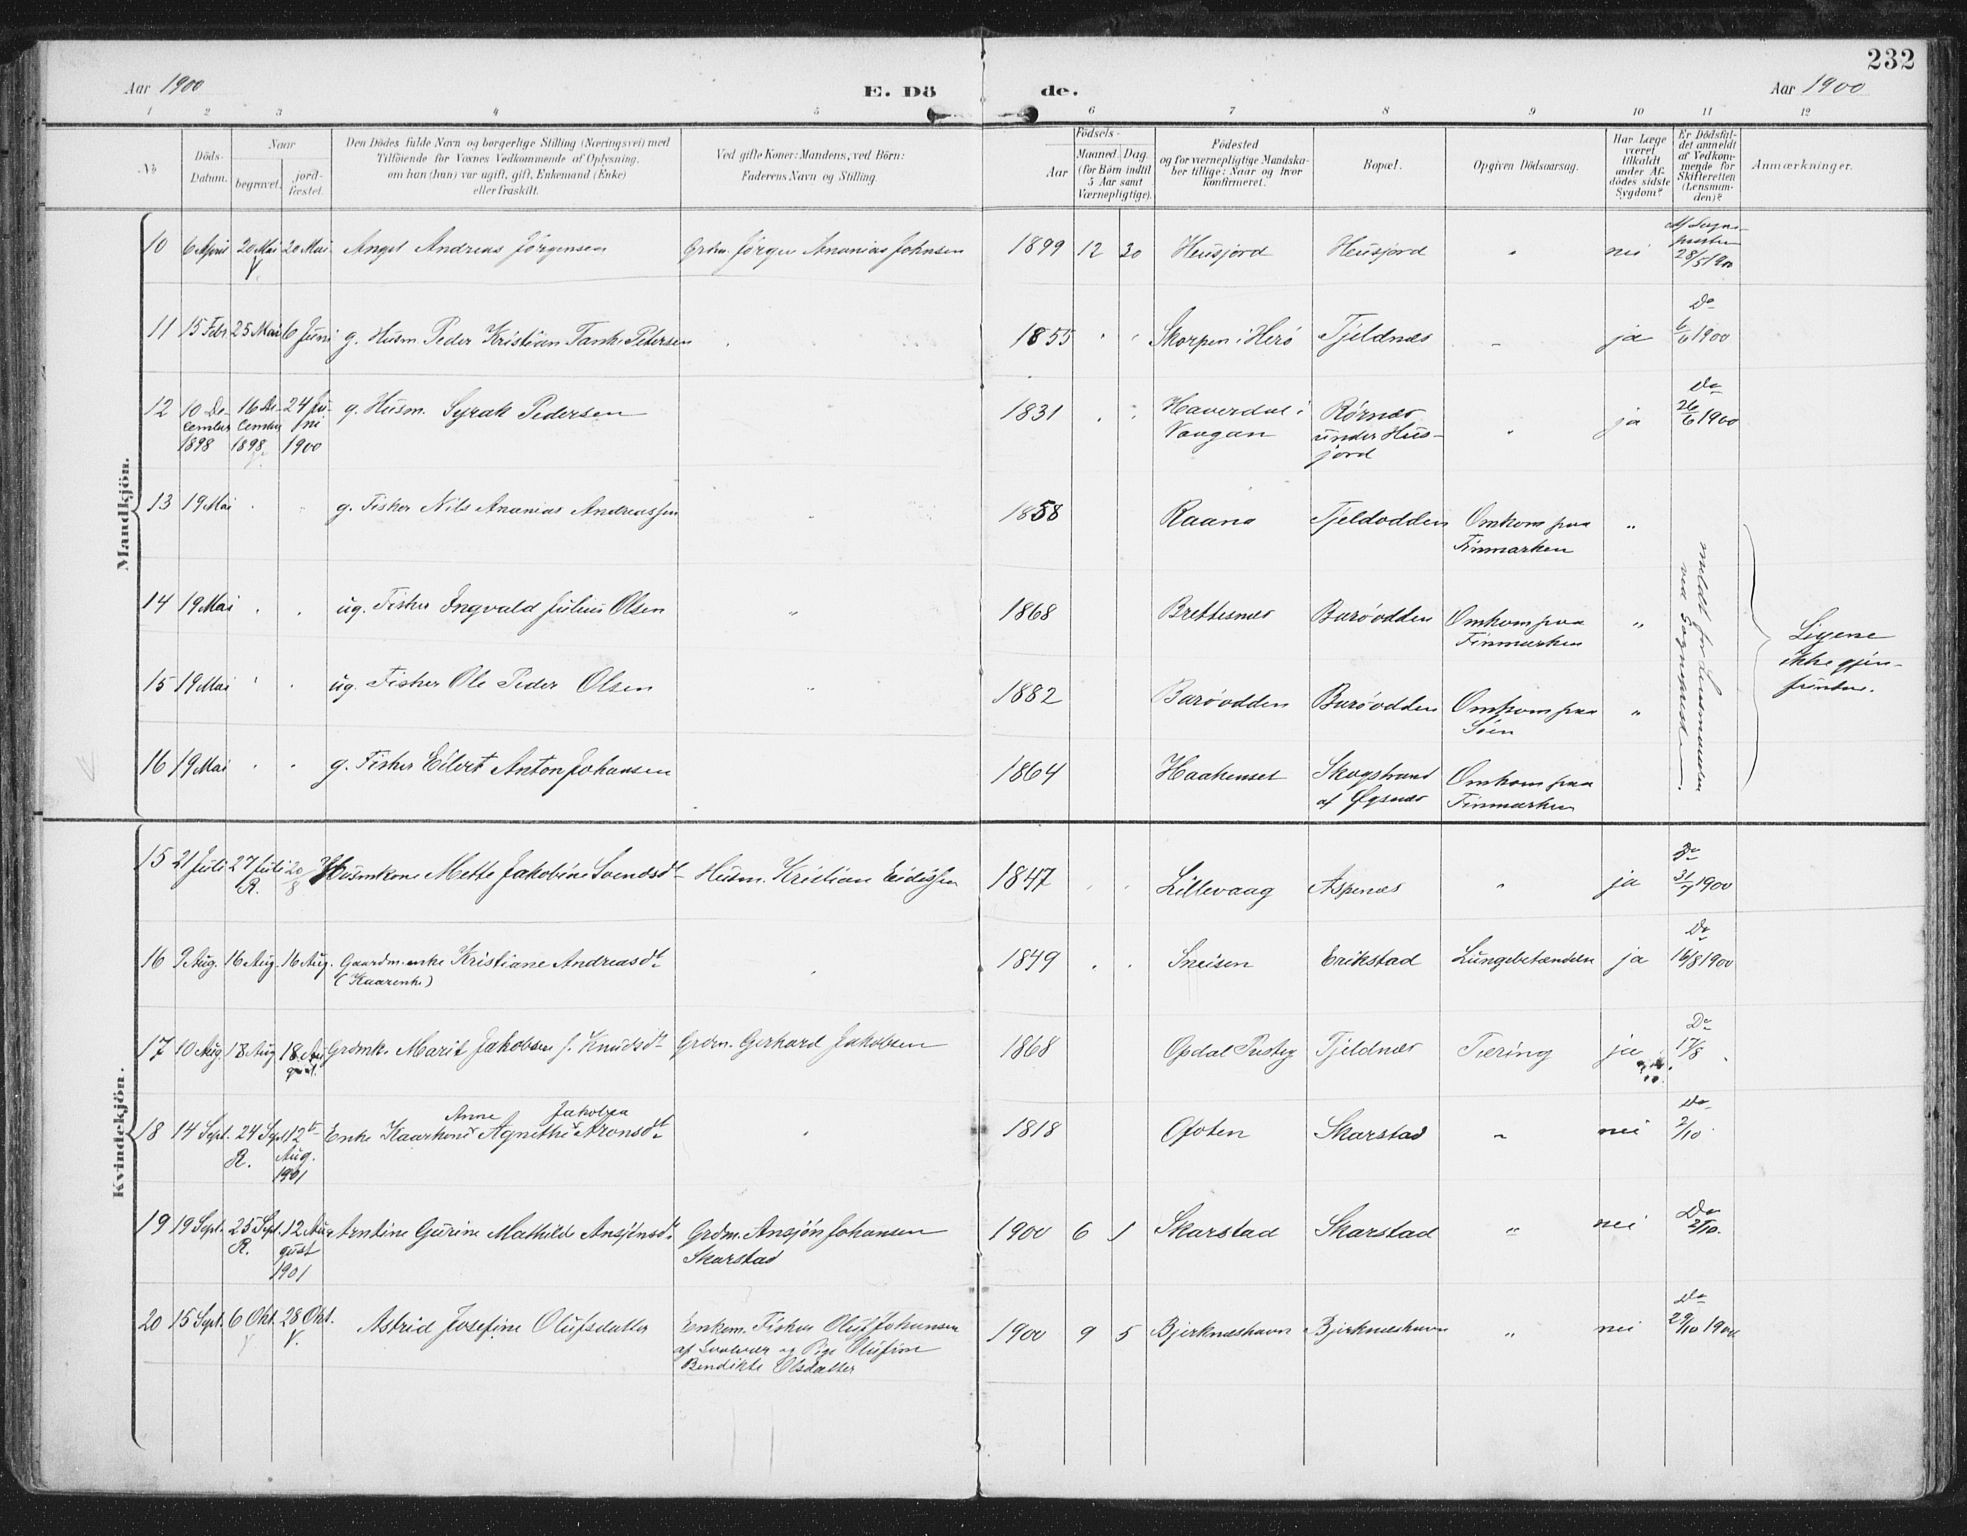 232
Aar 1900 E. Dö de. Aar 1900
1 2 3 4 5 6 7 8 9 10 11 12
No
Döds-Datum.
Naar
begravet.
jord-fæstet.
Den Dödes fulde Navn og borgerlige Stilling (Næringsvei) med
Tilföiende for Voxnes Vedkommende af Oplysning,
om han (hun) var ugift, gift, Enkemand (Enke)
eller fraskilt.
Ved gifte Koner: Mandens, ved Börn:
Faderens Navn og Stilling.
Födsels-
Aar
Maaned. Dag.
(for Börn indtil
5 Aar samt
Værnepligtige).
Födested
og for værnepligtige Mandska-
ber tillige: Naar og hvor
konfirmeret.
Bopæl.
Opgiven Dödsaarsag.
Har Læge
været
tilkaldt
under Af-
dödes sidste
Sygdom?
Er Dödsfal-
det anmeldt
af Vedkom-
mende for
Skifteretten
(Lensman-
den)?
Anmærkninger.
Mandkjön.
10 6 April 20 Mai V. 20 Mai Angel Andreas Jörgensen Grdm. Jörgen Ananias Johnsen 1899 12 30 Heusjord Heusjord " nei 28/5 1900
11 15 Febr 25 Mai 6 Juni g. Husm. Peder Kristian Tank Petersen " 1855 " " Skorpen i Herö Tjeldnæs " ja Do 6/6 1900
12 10 De-cember 1898 16 De-cember 1898 24 Ju-ni 1900 g. Husm. Syrak Pedersen 1831 " " Haverdal i Vaagan Rörnæs under Hus-jord " ja Do 26/6 1900
13 19 Mai " " g. Fisker Nils Ananias Andreassen " 1858 Raana Tjeldodden Omkom paa Finmarken "
14 19 Mai " " ug. Fisker Ingvald Julius Olsen " 1868 Brettesnæs Baröodden Omkom paa Finmarken "
15 19 Mai " " ug. Fisker Ole Peder Olsen " 1882 Baröodden Baröodden Omkom paa Söen "
16 19 Mai " " g. Fisker Eilert Anton Johansen 1864 Haakenset Skogstrand af Øgsnæs Omkom paa Finmarken
meldt for Lensmanden
ved Sognepresten.
Ligene
ikke gjen-
fundne.
Kvindekjön.
15 21 Juli 27 Juli R. 20/8 Husmkone Mette Jakobine Svendsdt Husm. Kristian Eidissen 1847 " " Lillevaag Aspenæs " ja Do 31/7 1900
16 9 Aug. 16 Aug. 16 Aug. Gaardm.enke Kristiane Andreasdt (Kaarenke) " 1849 " " Sneisen Erikstad Lungebetændelse ja Do 16/8 1900
17 10 Aug. 18 Aug 18 Au-gust. Grdmk. Marit Jakobsen f. Knudsdt Grdm. Gerhard Jakobsen 1868 Opdal Prestg Tjeldnæs Tæring ja Do 17/8
18 14 Sept. 24 Sep R. 12te Aug. 1901 Enke Kaarkone Anne Agnethe Jakobea Aronsdt " 1818 Ofoten Skarstad " nei Do 2/10
19 19 Sept. 25 Sept. R. 12 Au-gust 1901 Arntine Gurine Mathilde Ansjönsdt Grdm. Ansjön Johansen Skarstad 1900 6 1 Skarstad Skarstad " nei Do 2/10.
20 15 Sept. 6 Okt. 28 Okt. V. Astrid Josefine Olufsdatter Enkem. Fisker Oluf Johansen af Svolvær og Pige Olufine Bendikte Olsdatter 1900 9 5 Bjerknæshavn Bjerknæshavn " nei Do 29/10 1900